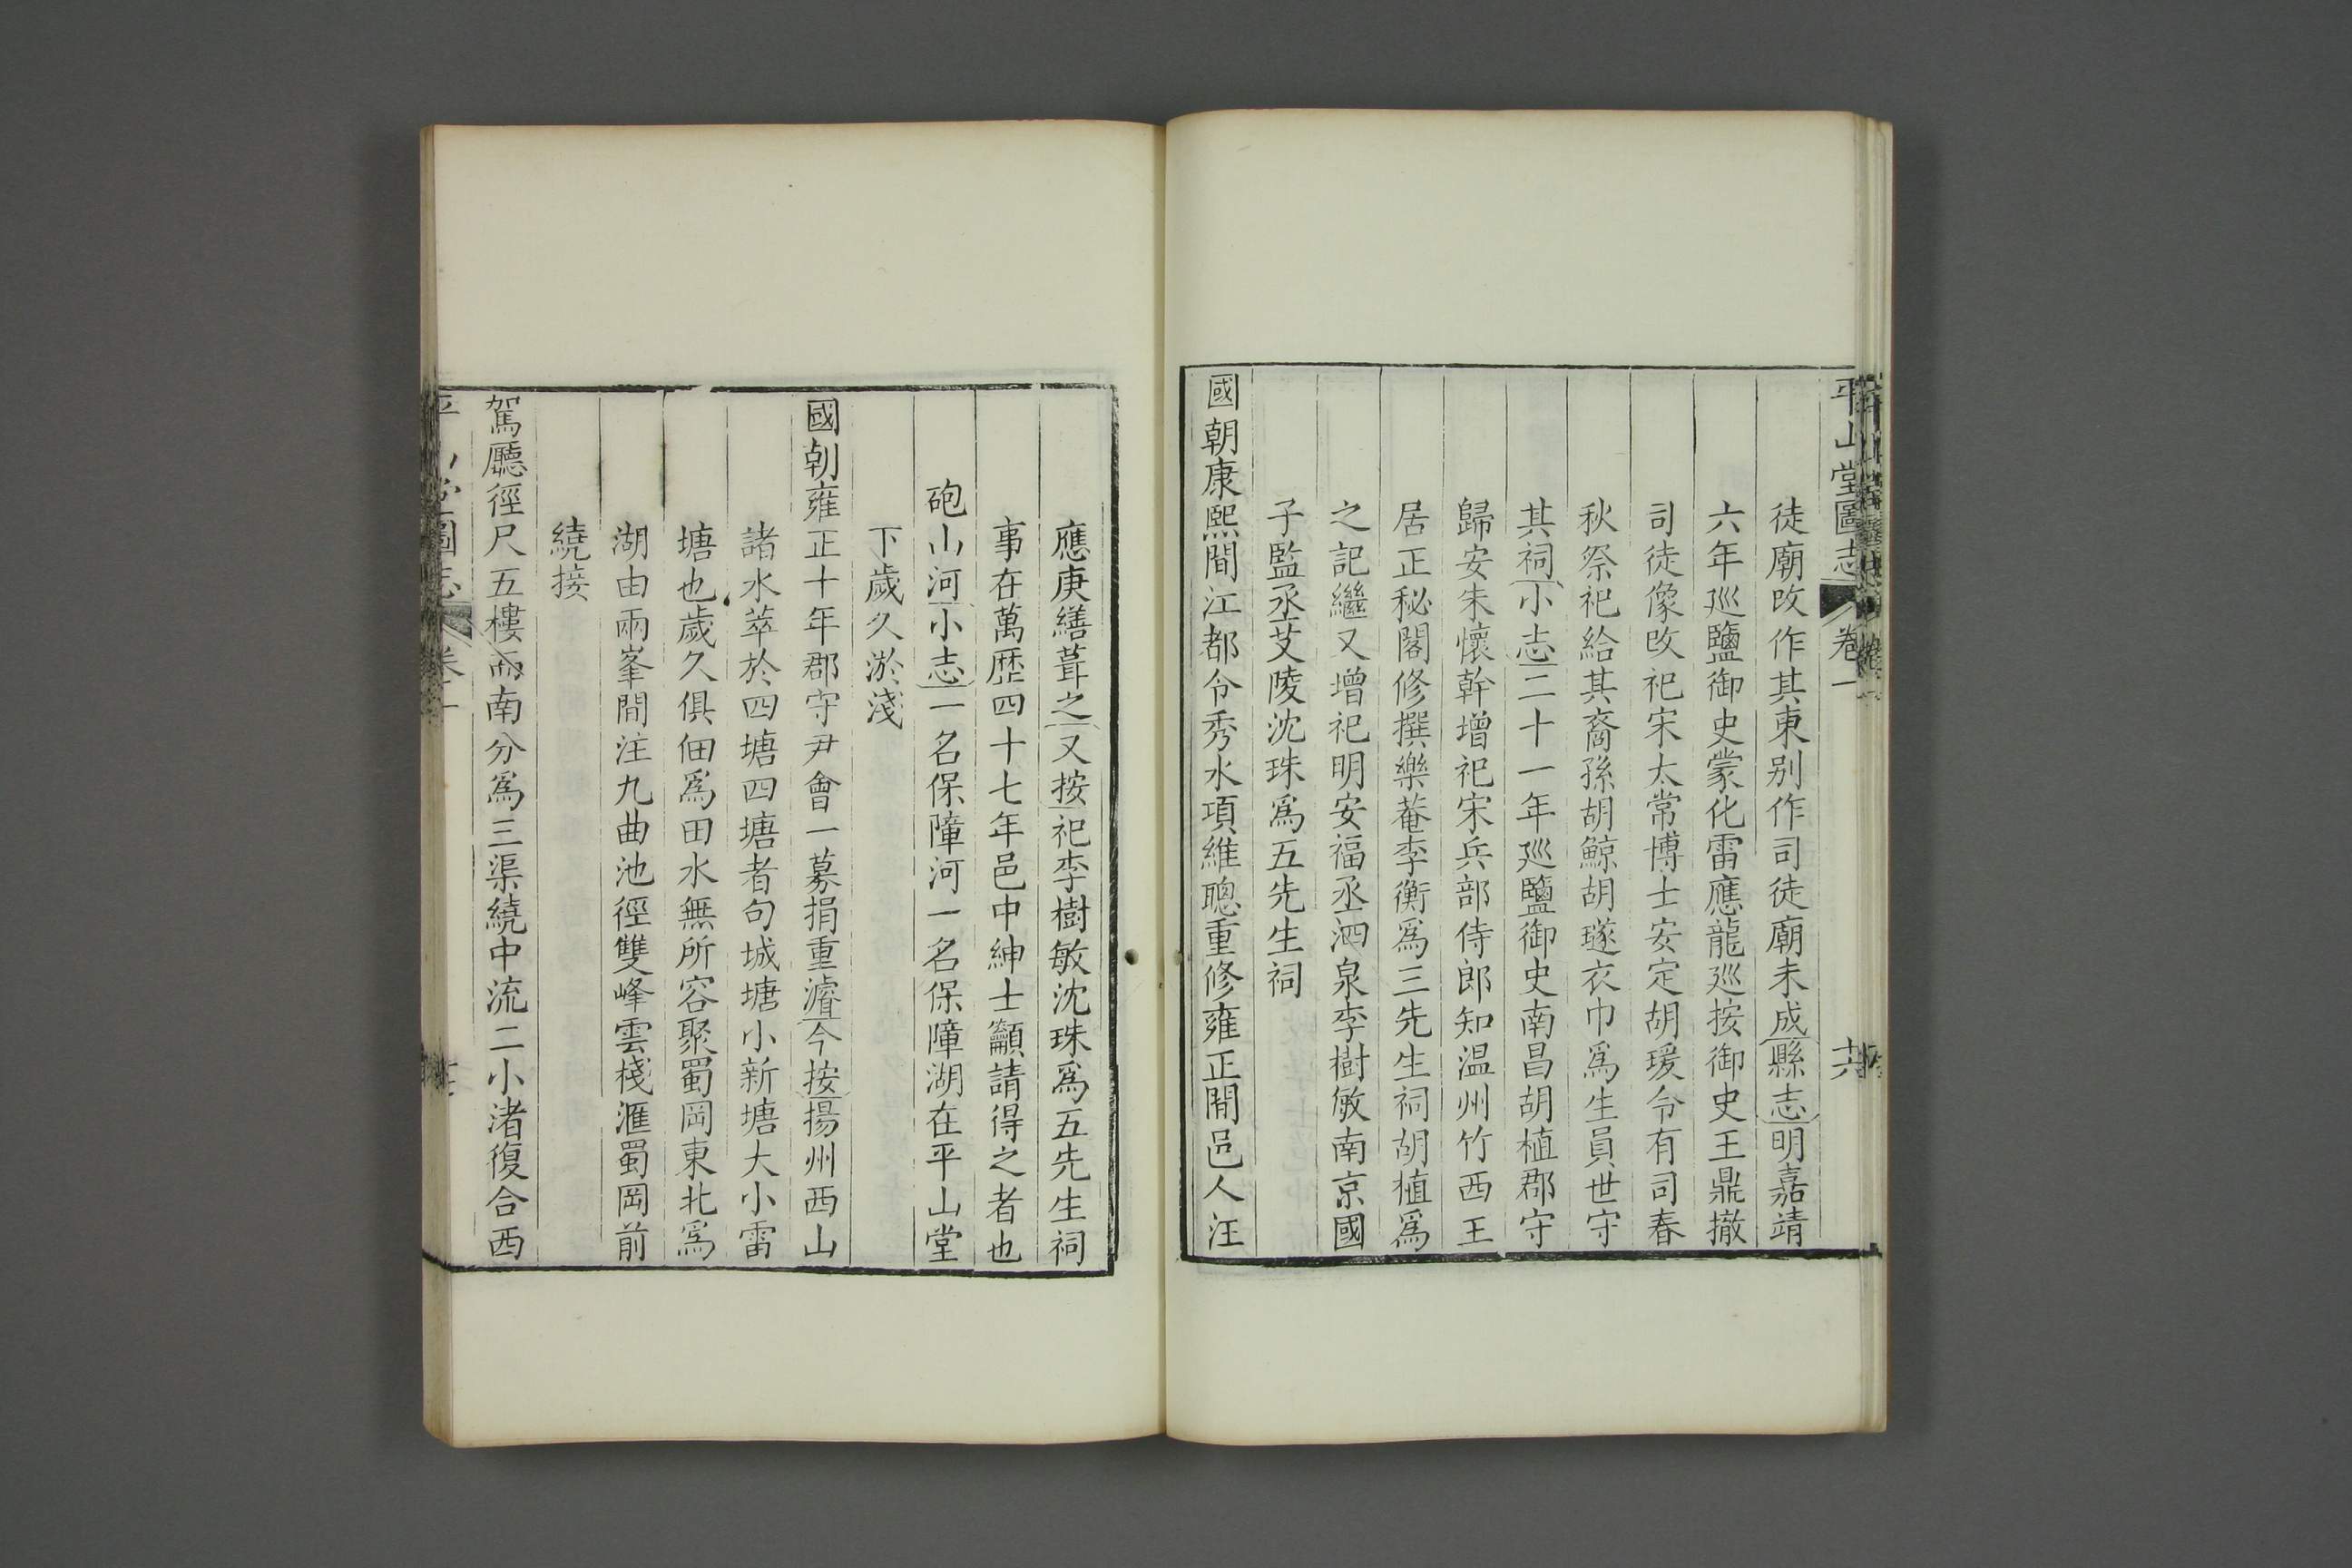 平山堂圖志 卷一 十六
徒廟改作其東别作司徒廟未成縣志明嘉靖
六年巡鹽御史蒙化雷應龍巡按御史王鼎撤
司徒像改祀宋太常博士安定胡瑗令有司春
秋祭祀給其裔孫胡鯨胡璲衣巾爲生員世守
其祠小志二十一年巡鹽御史南昌胡植郡守
歸安朱懷幹增祀宋兵部侍郎知温州竹西王
居正秘閣修撰樂菴李衡爲三先生祠胡植爲
之記繼又增祀明安福丞泗泉李樹敏南京國
子監丞艾陵沈珠爲五先生祠
國朝康熙間江都令秀水項維聰重修雍正間邑人汪
應庚繕葺之又按祀李樹敏沈珠爲五先生祠
事在萬歷四十七年邑中紳士籲請得之者也
砲山河小志一名保障河一名保障湖在平山堂
下歲久淤淺
國朝雍正十年郡守尹會一募捐重濬今按揚州西山
諸水萃於四塘四塘者句城塘小新塘大小雷
塘也歲久俱佃爲田水無所容聚蜀岡東北爲
湖由兩峯間注九曲池徑雙峰雲棧滙蜀岡前
繞接
駕廳徑尺五樓而南分爲三渠繞中流二小渚復合西